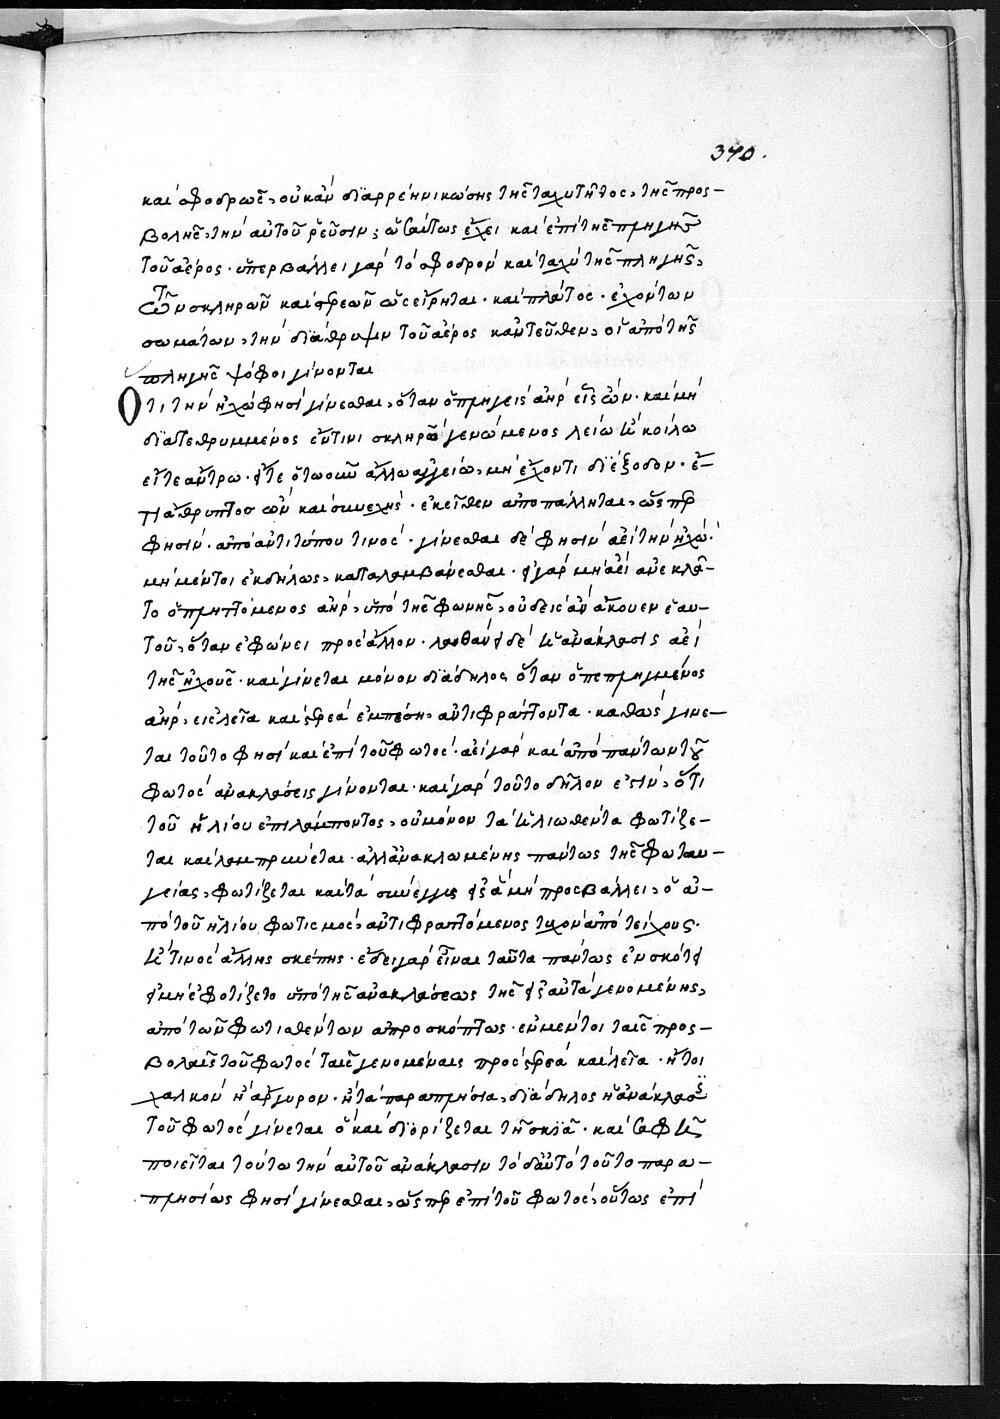 370.
καὶ σφοδρῶς, οὐκ ἂν διαρρέῃ νικώσης τῆς ταχυτῆτος, τῆς προς-
βολῆς, τὴν αὐτοῦ ῥεῦσιν; ὡσαύτως ἔχει καὶ ἐπὶ τῆς πληγῆς
τοῦ ἀέρος · ὑπερβάλλει γὰρ τὸ σφοδρὸν καὶ ταχὺ τῆς πληγῆς,
τῶν σκληρῶν καὶ στρεῶν ὡς εἴρηται · καὶ πλάτος · ἐχόντων
σωμάτων, τὴν διάθρυψιν τοῦ ἀέρος κἀντεῦθεν, οἱ ἀπὸ τῆς
πληγῆς ψόφοι γίνονται
Ὅτι τὴν ἠχώ φησὶ γίνεσθαι, ὅταν ὁ πληγεὶς ἀὴρ εἷς ὢν · καὶ μὴ
διατεθρυμμένος ἔν τινι σκληρῷ γενόμενος λείῳ καὶ κοίλῳ
εἴτε ἄντρῳ · εἴτε ὁτωοῦν ἄλλῳ ἀγγείῳ, μὴ ἔχοντι διέξοδον · ἔ-
τι ἄθρυπτος ὢν καὶ συνεχής · ἐκεῖθεν ἀποπάλληται, ὥσπερ
φησὶν · ἀπὸ ἀντιτύπου τινός · γίνεσθαι δέ φησιν ἀεὶ τὴν ἠχώ ·
μὴ μέντοι ἐκδήλως, καταλαμβάνεσθαι · εἰ γὰρ μὴ ἀεὶ ἀνεκλᾶ-
το ὁ πληττόμενος ἀήρ, ὑπὸ τῆς φωνῆς, οὐδεὶς ἂν ἄκουεν ἑαυ-
τοῦ, ὅταν ἐφώνει πρὸς ἄλλον · λανθάνει δὲ ἡ ἀνάκλασις ἀεὶ
τῆς ἠχοῦς · καὶ γίνεται μόνον διάδηλος ὅταν ὁ πεπληγμένος
ἀήρ, εἰς λεῖα καὶ στρεὰ ἐμπέσῃ, ἀντιφράττοντα · καθὼς γίνε-
ται τοῦτο φησὶ καὶ ἐπὶ τοῦ φωτός · ἀεὶ γὰρ καὶ ἀπὸ πάντων τοῦ
φωτὸς ἀνακλάσεις γίνονται · καὶ γὰρ τοῦτο δῆλον ἐστὶν, ὅτι
τοῦ ἡλίου ἐπιλάμποντος, οὐ μόνον τὰ ἡλιωθέντα φωτίζε-
ται καὶ λαμπρύνεται · ἀλλ' ἀνακλωμένης πάντως τῆς φωταυ-
γείας, φωτίζεται καὶ τὰ σύνεγγυς εἰς ἃ μὴ προσβάλλει, ὁ ἀ-
πὸ τοῦ ἡλίου φωτισμὸς, ἀντιφραττόμενος τυχὸν ἀπὸ τείχους ·
ἤ τινος ἄλλης σκέπης · ἔδει γὰρ εἶναι ταῦτα πάντως ἐν σκότει
εἰ μὴ ἐφοτίζετο ὑπὸ τῆς ἀνακλάσεως τῆς εἰς αὐτὰ γενομένης,
ἀπὸ τῶν φωτισθέντων ἀπροσκόπτως · ἐν μέντοι ταῖς προς-
βολαῖς τοῦ φωτὸς ταῖς γενομέναις πρὸς στρεὰ καὶ λεῖα · ἤτοι
χαλκὸν ἢ ἄργυρον · ἢ τὰ παραπλήσια, διάδηλος ἡ ἀνάκλασις
τοῦ φωτὸς γίνεται ὃ καὶ διορίζεται τῇ σκιᾷ · καὶ σαφῆ
ποιεῖται τούτω τὴν αὐτοῦ ἀνάκλασιν τὸ δ' αὐτὸ τοῦτο παρα-
πλησίως φησὶ γίνεσθαι, ὥσπερ ἐπὶ τοῦ φωτὸς, οὕτως ἐπὶ